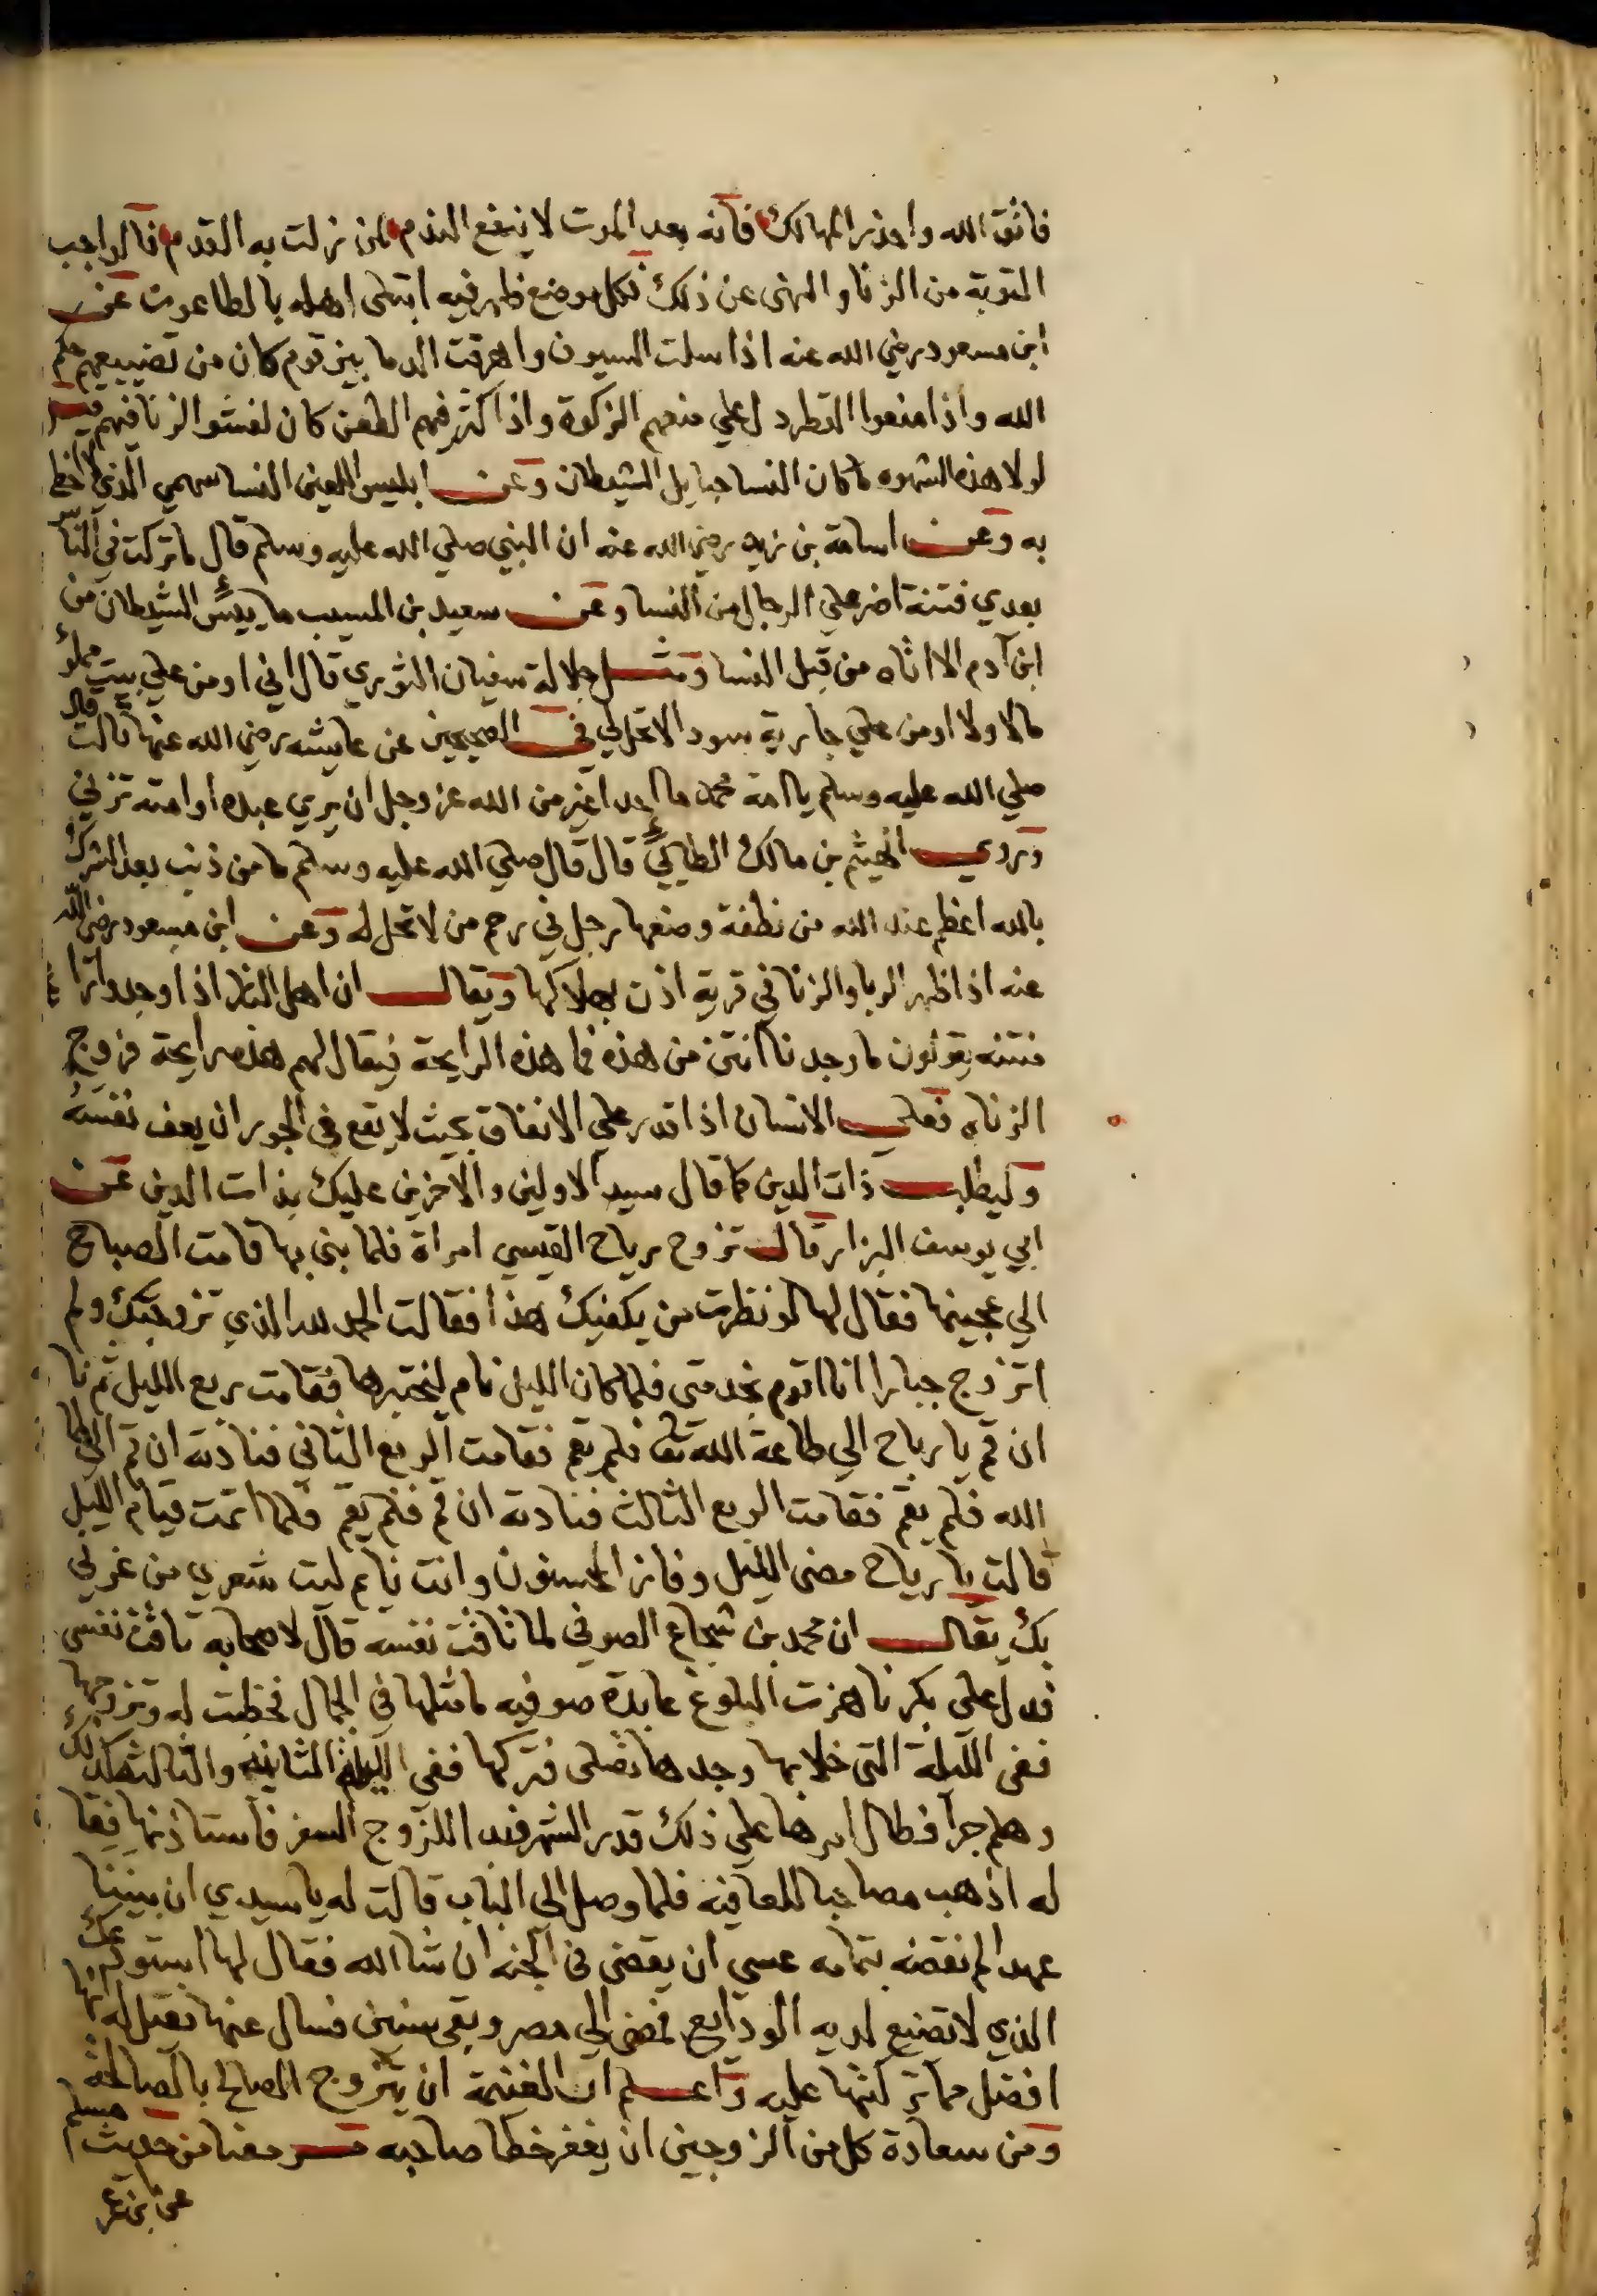 فاتق الله واحذر المهالك فانه بعد الموت لا ينفع الندم لمن نزلت به القدم فالواجب
التوبة من الزنا والنهى عن ذلك فكل موضع ظهر فيه ابتلى اهله بالطاعون عن
ابن مسعود رضي الله عنه اذا سلت السيوف واهرقت الدما بين قوم كان من تضييعهم حكم
الله واذا منعوا القطر دل علي منعهم الزكوة واذا كثر فيهم الطعن كان لفشو الزنا فيهم
لولا هذه الشهوه ما كان النسا حبايل الشيطان وعن ابليس اللعين النسا سهمي الذي لا اخطي
به وعن اسامة بن زيد رضي الله عنه ان النبي صلي الله عليه وسلم قال ما تركت في الناس
بعدي فتنة اضر علي الرجال من النسا وعن سعيد بن المسيب ما ييئس الشيطان من
ابن آدم الا اتاه من قبل النسا ومثل جلالة سفيان الثوري قال اني اومن علي بيت مملؤ
مالا ولا اومن علي جارية سودا لا تحل لي في الصحيحين عن عايشه رضي الله عنها قالت قال
صلي الله عليه وسلم يا امة محمد ما احد اغير من الله عز وجل ان يري عبده او امته تزني
وروي الهيثم بن مالك الطائي قال قال صلي الله عليه وسلم ما من ذنب بعد الشرك
بالله اعظم عند الله من نطفة وضعها رجل في رحم من لا تحل له وعن ابن مسعود رضي الله
عنه اذا ظهر الربا والزنا في قرية اذن بهلاكها ويقال ان اهل النار اذا وجدوا
منتنه يقولون ما وجدنا انتن من هذه فما هذه الرايحة فيقال لهم هذه رايحة فروج
الزناه فعلي الانسان اذا قدر علي الانفاق بحيث لا يقع في الجور ان يعف نفسه
وليطلب ذات الدين كما قال سيد الاولين والاخرين عليك بذات الدين عن
ابي يوسف البزار قال تزوج رياح القيسي امراة فلما بنى بها قامت الصباح
الي عجينها فقال لها لو نظرت من يكفيك هذا فقالت الحمد لله الذي تزوجتك ولم
اتزوج جبارا انا اقوم بخدمتى فلما كان الليل نام ليختبرها فقامت ربع الليل ثم نا
ان قم يا رياح الي طاعة الله تعا فلم يقم فقامت الربع الثاني فنادته ان قم الي طا
الله فلم يقم فقامت الربع الثالث فنادته ان قم فلم يقم فلما اتمت قيام الليل
قالت يا رياح مضى الليل وفاز المحسنون وانت نايم ليت شعري من غرني
بك يقال ان محمد بن شجاع الصوفي لما تاقت نفسه قال لاصحابه تاقت نفسى
فدل على بكر ناهزت البلوغ عابدة صوفيه ما مثلها في الجمال فخطبت له وتزوجها
ففى الليلة التى خلا بها وجدها تصلى فتركها ففى الليلة الثانيه والثالثه كذلك
وهلم جرا فطال امرها علي ذلك قدر الشهر فبدا للزوج السفر فاستاذنها فقا
له اذهب مصاحبا للعافيه فلما وصل الى الباب قالت له يا سيدي ان بيننا
عهدا لم نقضه بتمامه عسى ان يقضى في الجنه ان شا الله فقال لها استودعك
الذي لا تضيع لديه الودايع فمضى الي مصر وبقى سنين فسال عنها فقيل له انها
افضل مما تركتها عليه واعلم ان الغنيمة ان يتزوج الصالح بالصالحة
ومن سعادة كل من الزوجين ان يغفر خطا صاحبه مر معنا من حديث مسلم
عن ابن عمر